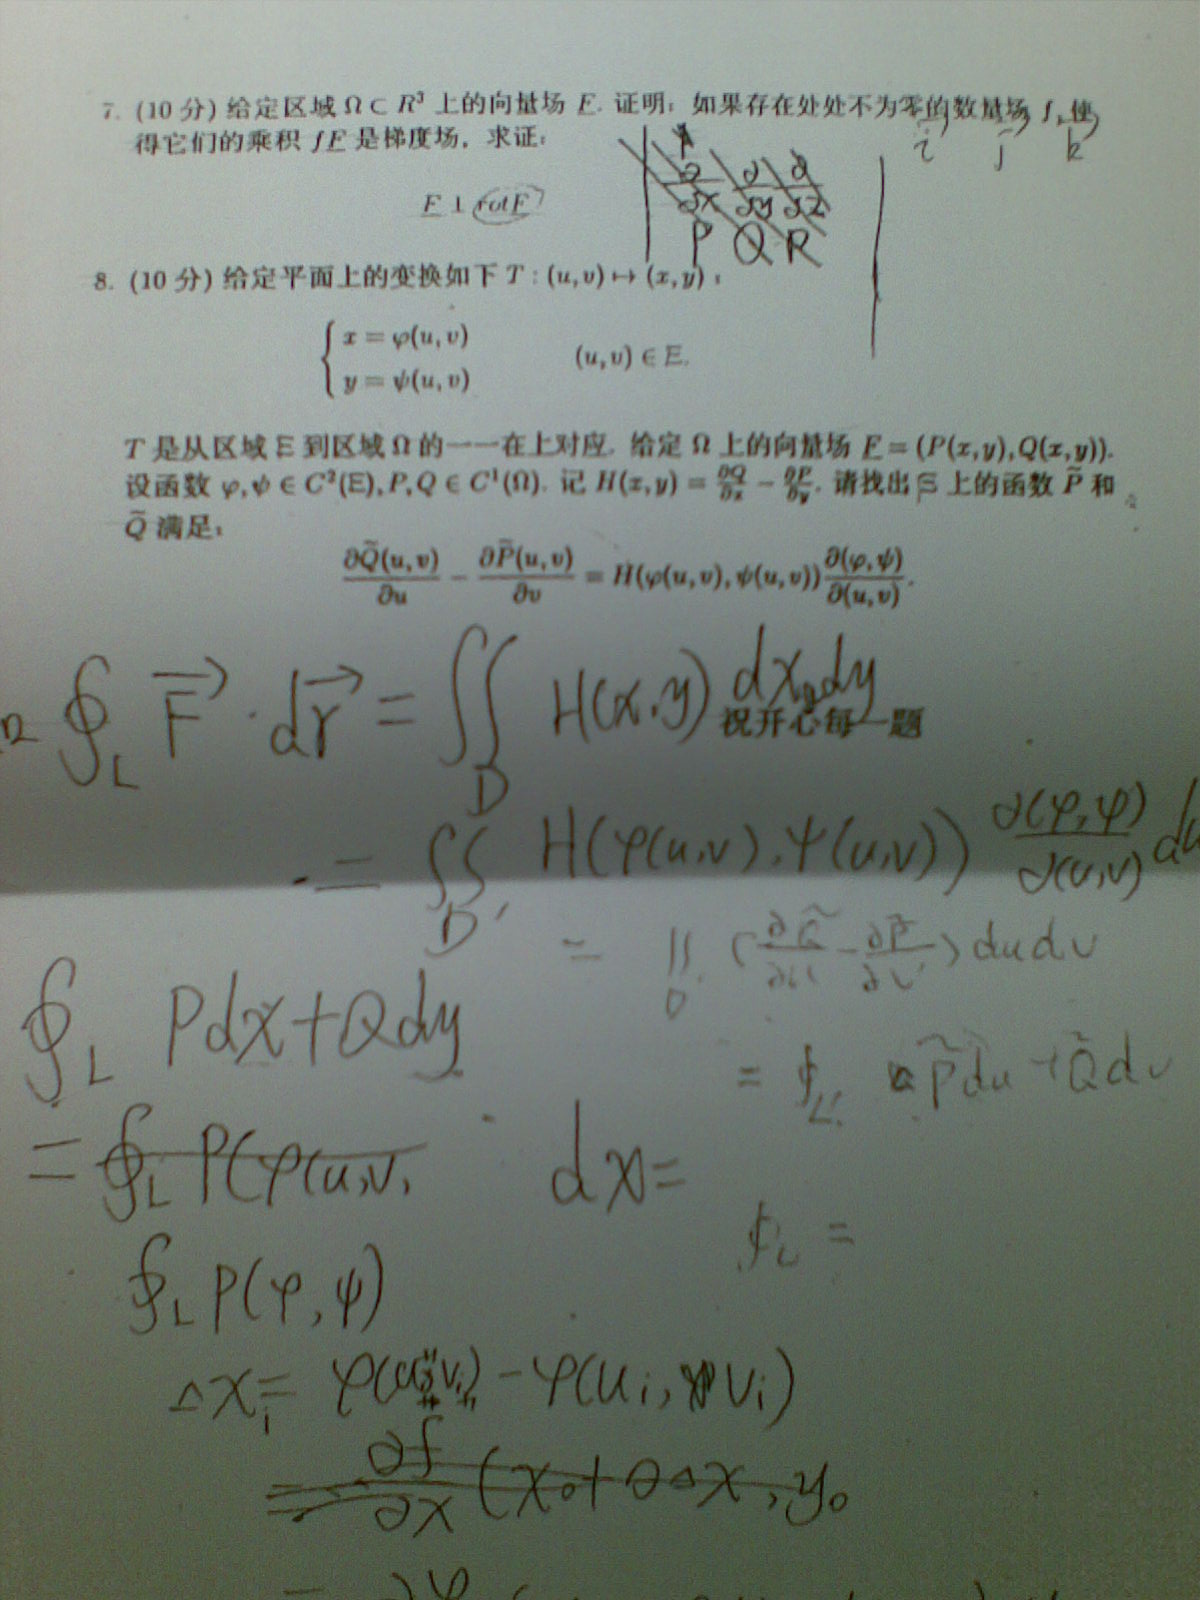 7. (10 分) 给定区域 Ω ⊂ R³ 上的向量场 F. 证明: 如果存在处处不为零的数量场 f, 使
得它们的乘积 fF 是梯度场, 求证:
i j k
∂/∂x ∂/∂y ∂/∂z
F ⊥ rotF
P Q R
8. (10 分) 给定平面上的变换如下 T : (u, v) ↦ (x, y) :
x = φ(u, v)
(u, v) ∈ E.
y = ψ(u, v)
T 是从区域 E 到区域 Ω 的一一在上对应. 给定 Ω 上的向量场 F = (P(x, y), Q(x, y)).
设函数 φ, ψ ∈ C²(E), P, Q ∈ C¹(Ω). 记 H(x, y) = ∂Q/∂x − ∂P/∂y. 请找出 E 上的函数 P̃ 和
Q̃ 满足:
∂Q̃(u, v)/∂u − ∂P̃(u, v)/∂v = H(φ(u, v), ψ(u, v)) ∂(φ, ψ)/∂(u, v).
∮_L F⃗ · dr⃗ = ∬_D H(x, y) dxdy
祝开心每一题
= ∬_D' H(φ(u,v), ψ(u,v)) ∂(φ,ψ)/∂(u,v) du
= ∬_D' (∂Q̃/∂u − ∂P̃/∂v) dudv
∮_L Pdx+Qdy
= ∮_L' P̃du + Q̃dv
= ∮_L P(φ(u,v,
dx=
∮_L =
∮_L P(φ, ψ)
Δx_i = φ( ) − φ(u_i, v_i)
= ∂f/∂x (x₀ + θΔx, y₀